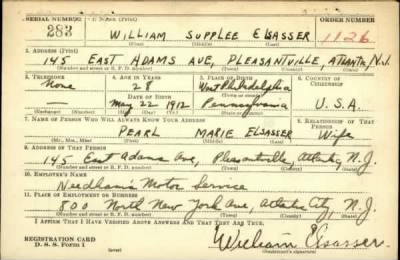 SERIAL NUMBER 1. NAME (Print) ORDER NUMBER
283 WILLIAM SUPPLEE ELSASSER 1126
(First) (Middle) (Last)
2. ADDRESS (Print)
145 EAST ADAMS AVE, PLEASANTVILLE, ATLANTIC N.J.
(Number and street or R. F. D. number) (Town) (County) (State)
3. TELEPHONE 4. AGE IN YEARS 5. PLACE OF BIRTH 6. COUNTRY OF
None 28 West Philadelphia CITIZENSHIP
DATE OF BIRTH (Town or county)
— May 22 1912 Pennsylvania U.S.A.
(Exchange) (Number) (Mo.) (Day) (Yr.) (State or country)
7. NAME OF PERSON WHO WILL ALWAYS KNOW YOUR ADDRESS 8. RELATIONSHIP OF THAT PERSON
PEARL MARIE ELSASSER Wife
(Mr., Mrs., Miss) (First) (Middle) (Last)
9. ADDRESS OF THAT PERSON
145 East Adams Ave, Pleasantville, Atlantic, N.J.
(Number and street or R. F. D. number) (Town) (County) (State)
10. EMPLOYER'S NAME
Needham's Motor Service
11. PLACE OF EMPLOYMENT OR BUSINESS
800 North New York Ave, Atlantic City, N.J.
(Number and street or R. F. D. number) (Town) (County) (State)
I AFFIRM THAT I HAVE VERIFIED ABOVE ANSWERS AND THAT THEY ARE TRUE.
REGISTRATION CARD William Elsasser
D. S. S. Form 1 (Registrant's signature)